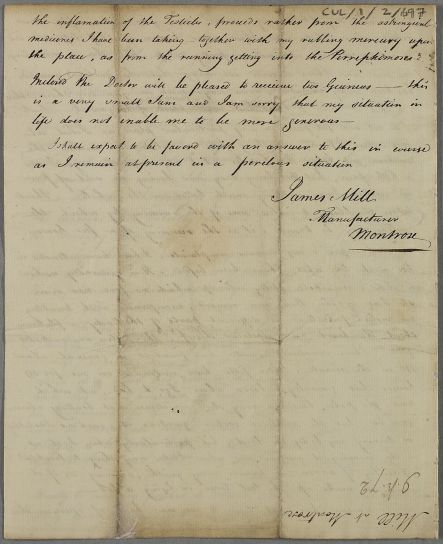 CUL/1/2/697
the inflamation of the Testicles, proceeds rather from the astringent
medicines I have been taking together with my rubbing mercury upon
the place, as from the running getting into the
Inclosd the Doctor will be pleased to receive two Guineas — this
is a very small Sum and I am sorry that my situation in
life does not enable me to be more generous —
I shall expect to be favord with an answer to this in course
as I remain at present in a perilous situation
James Mill
Manufacturer
Montrose
Mill at Montrose